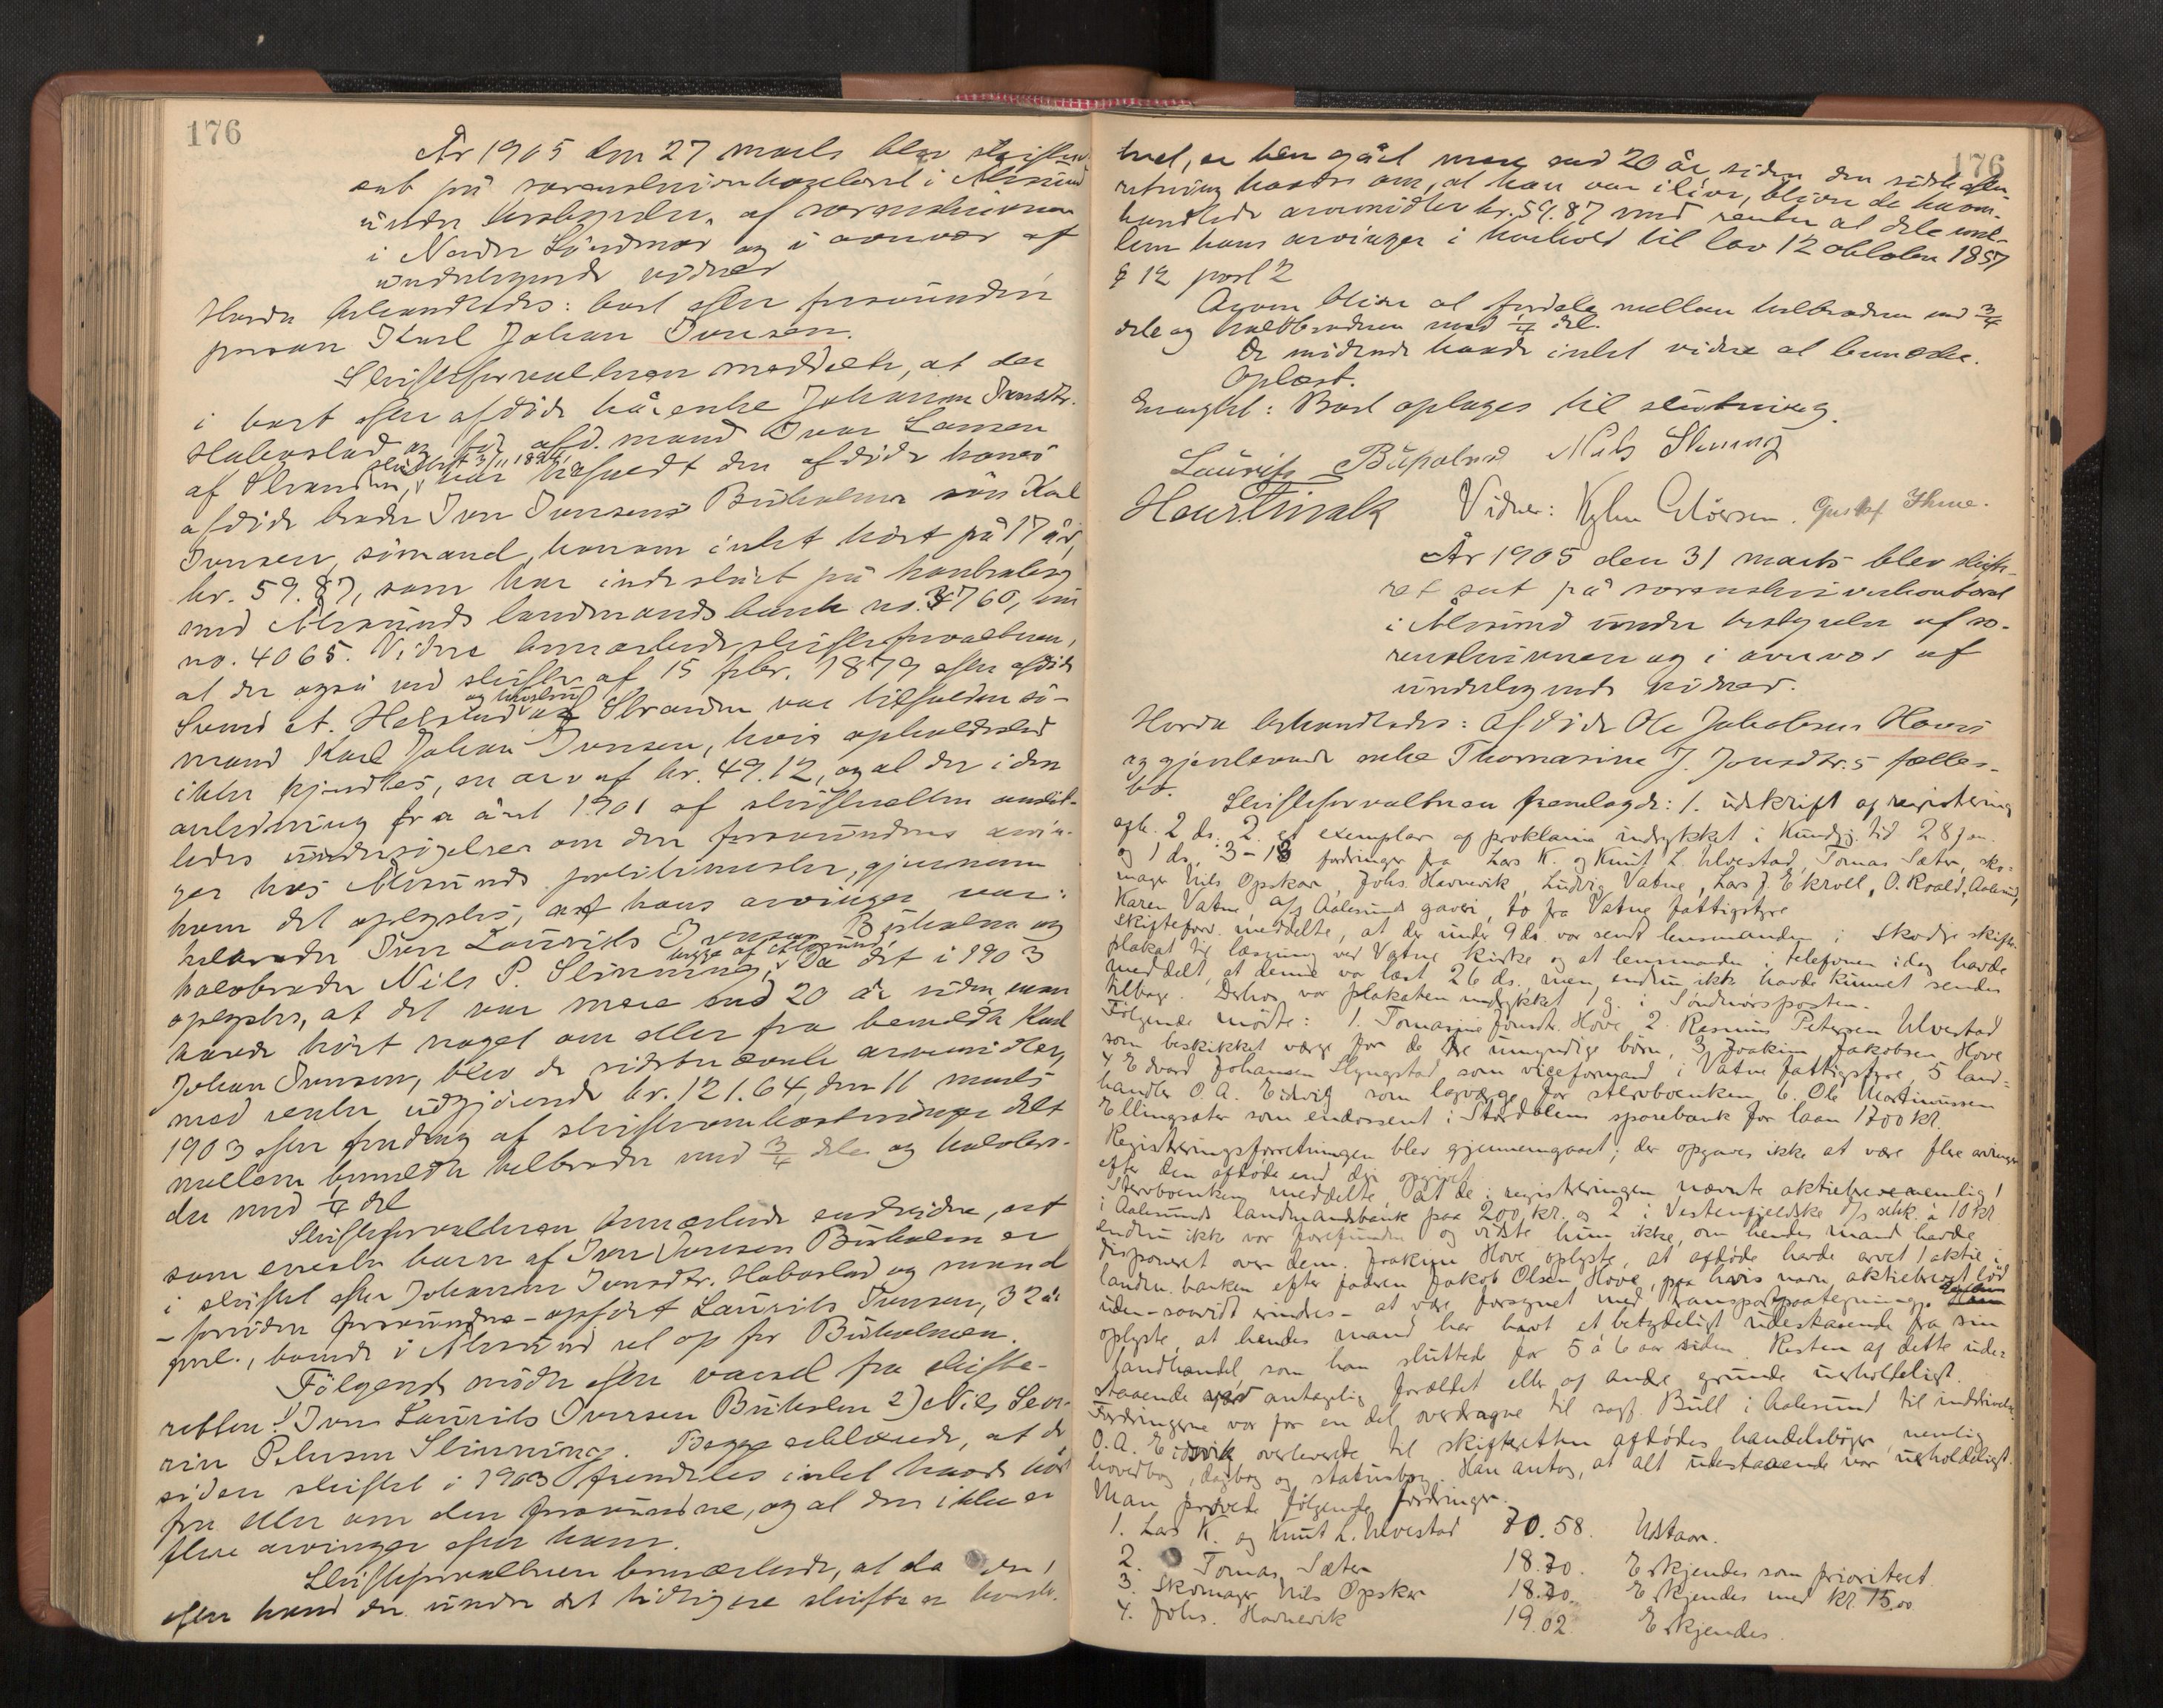 176
År 1905 den 27 marts blev skifteret
sat på sorenskriverkontoret i Ålesund
under bestyrelse af sorenskriveren
i Nordre Söndmör og i overvær af
undertegnede vidner
Hvorda behandledes: boet efter forsvunden
person Karl Johan Iversen.
Skifteforvalteren meddelte, at der
i boet efter afdöde kårenke Johanne Iversdtr.
Habostad og för afd. mand Iver Larsen
af Stranden, sluttet 3/11 1896, var tilfaldt den afdöde hones
afdöde broder Iver Iversens Buholmen sön Karl
Iversen, sömand, hvorom intet hört på 17 år,
kr. 59.87, som har indestået på kontrabog
med Ålesunds landmandsbank no. 3760, nu
no. 4065. Videre bemærkede skifteforvalteren,
at der også ved skiftet af 15 febr. 1879 efter afdöde
Svend A. Helstad og hustru af Stranden var tilfalden sö-
mand Karl Johan Iversen, hvis opholdssted
ikke kjendtes, en arv af kr. 49.12, og at der i den
anledning fra året 1901 af skifteretten anstil-
ledes undersögelser om den forsvundnes arvin-
ger hos Ålesunds politimester, gjennem
hvem det oplystes, at hans arvinger var:
helbroder Iver Laurits Iversen Buholmen og
halvbroder Nils P. Slinning, begge af Ålesund. Da det i 1903
oplystes, at det var mere end 20 år siden, man
havde hört noget om eller fra bemeldte Karl
Johan Iversen, blev de sidstnævnte arvemidler,
med renter udgjörende kr. 121.64, den 11 marts
1903 efter fradrag af skifteomkostninger delt
mellem bemeldte helbroder med 3/4 dele og halvbro-
der med 1/4 del
Skifteforvalteren bemærkede endvidere, at
som eneste barn af Iver Iversen Buholmen er
i skiftet efter Johanne Iversdtr. Habostad og mand
- foruden forsvundne - opfört Laurits Iversen, 32 år
gml., boende i Ålesund vel op for Buholmen.
Fölgende mödte efter varsel fra skifte-
retten: 1) Iver Laurits Iversen Buholmen 2) Nils Seve-
rin Petersen Slinning. Begge erklærede, at de
siden skiftet i 1903 fremdeles intet havde hört
fra eller om den forsvundne, og at der ikke er
flere arvinger efter ham.
Skifteforvalteren bemærkede, at da der,
efter hvad der under det tidligere skifte er konsta-
176
teret, er hengået mere end 20 år, siden den sidste efter-
retning havdes om, at han var ilive, bliver de her om-
handlede arvemidler kr. 59.87 med renter at dele mel-
lem hans arvinger i henhold til lov 12 oktober 1857
§ 12 post 2
Arven bliver at fordele mellem helbroderen med 3/4
dele og halvbroderen med 1/4 del.
De mödende havde intet videre at bemærke.
Oplæst.
Eragtet: Boet optages til slutning.
Laurits Buholmen Nils Slinning
Vidner: Gustaf Thue.
År 1905 den 31 marts blev skifte-
ret sat på sorenskriverkontoret
i Ålesund under bestyrelse af so-
renskriveren og i overvær af
undertegnede vidner.
Hvorda behandledes: Afdöde Ole Jakobsen Hoves
og gjenlevende enke Thomasine J. Jonsdtr.s fælles-
bo.
Skifteforvalteren fremlagde: 1. udskrift af registrering
afh. 2 ds. 2. et exemplar af proklama indrykket i Kundgj. tid 28 jan
og 1 ds. 3-13 fordringer fra Lars K. og Knut L. Ulvestad, Tomas Sæter, sko-
mager Nils Opskar, Johs. Havnevik, Ludvig Vatne, Lars J. Ekroll, O. Roald, Aalesund,
Karen Vatne, A/S Aalesunds gaveri, to fra Vatne fattigstyre
Skifteforv. meddelte, at der under 9 ds. var sendt lensmanden i Skodje skifte-
plakat til læsning ved Vatne kirke og at lensmanden i telefonen idag havde
meddelt, at denne var læst 26 ds., men endnu ikke havde kunnet sendes
tilbage. Derhos var plakaten indrykket 1 g. i Söndmörsposten.
Fölgende mödte: 1. Tomasine Jonsdtr. Hove 2. Rasmus Petersen Ulvestad
som beskikket værge for de tre umyndige börn, 3 Joakim Jakobsen Hove
4 Edvard Johansen Slyngstad som viceformand i Vatne fattigstyre, 5 land-
handler O. A. Eidsvik som lagværge for stervboenken, 6. Ole Martinussen
Ellingsæter som endossent i Stordalens sparebank for laan 1700 kr.
Registreringsforretningen blev gjennemgaaet; der opgaves ikke at være flere arvinger
efter den afdöde end der opgivet
Stervboenken meddelte, at de i registreringen nævnte aktiebreve nemlig 1
i Aalesunds landmandsbank paa 200 kr. og 2 i Vestenfjeldske A/S selsk. à 10 kr
endnu ikke var forefunden og vidste hun ikke, om hendes mand havde
disponeret over dem. Joakim Hove oplyste, at afdöde havde arvet 1 aktie i
landm.banken efter faderen Jakob Olsen Hove, paa hvis navn aktiebrevet löd
uden - saavidt erindres - at være forsynet med transportpaategning. Enken
oplyste, at hendes mand har havt et betydeligt udestaaende fra sin
landhandel, som han sluttede for 5 à 6 aar siden. Resten af dette ude-
staaende var antagelig forældet eller af andre grunde uerholdeligt.
Fordringerne var for en del overdragne til sagf. Bull i Aalesund til inddrivelse.
O.A. Eidsvik overleverte til skifteretten afdödes handelsböger, nemlig
hovedbog, dagbog og statusbog. Han antog, at alt udestaaende var uerholdeligt.
Man prövede fölgende fordringer.
1. Lars K. og Knut L. Ulvestad 70.58. Udstaar.
2. Tomas Sæter 18.70. Erkjendes som prioritert.
3. Skomager Nils Opskar 18.70. Erkjendes med kr. 15.00
4. Johs. Havnevik 19.02. Erkjendes.